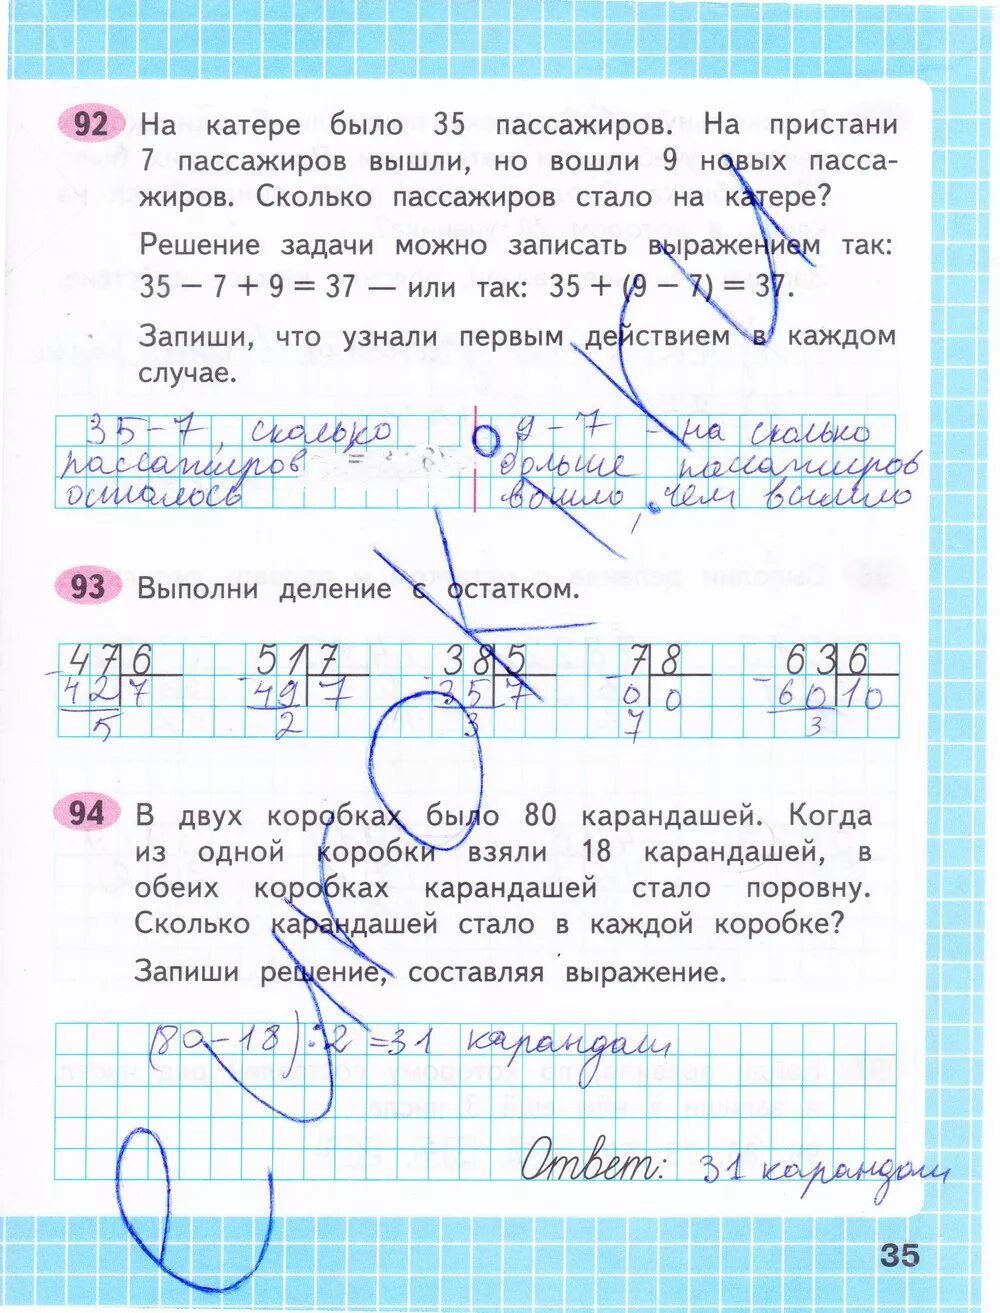 92 На катере было 35 пассажиров. На пристани
7 пассажиров вышли, но вошли 9 новых пасса-
жиров. Сколько пассажиров стало на катере?
Решение задачи можно записать выражением так:
35 − 7 + 9 = 37 — или так: 35 + (9 − 7) = 37.
Запиши, что узнали первым действием в каждом
случае.
35-7, сколько
пассажиров
осталось
9-7 - на сколько
больше пассажиров
вошло, чем вышло
93 Выполни деление с остатком.
47 6 51 7 38 5 7 8 63 6
- 42 7 - 49 7 - 35 7 - 0 0 - 60 10
5 2 3 7 3
94 В двух коробках было 80 карандашей. Когда
из одной коробки взяли 18 карандашей, в
обеих коробках карандашей стало поровну.
Сколько карандашей стало в каждой коробке?
Запиши решение, составляя выражение.
(80-18):2=31 карандаш
Ответ: 31 карандаш
35